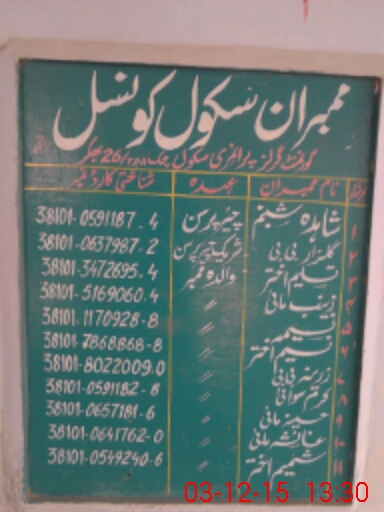 ممبران سکول کونسل
گورنمنٹ گرلز پرائمری سکول چک 26/TDA بھکر
نمبر نام ممبران عہدہ شناختی کارڈ نمبر
۱ شاہدہ شبنم چیئرپرسن 38101-0591187.4
۲ گلزار بی بی شریک چیئرپرسن 38101-0637987-2
۳ تسلیم اختر والدہ ممبر 38101-3472695.4
۴ زینب مائی 〃 38101-5169060.4
۵ نسیمہ 〃 38101-1170928-8
۶ نسیم اختر 〃 38101-7868868-8
۷ زرینہ بی بی 〃 38101-8022009.0
۸ 〃 38101-0591182-8
۹ حسینہ مائی 〃 38101-0657181-6
۱۰ عائشہ مائی 〃 38101-0641762-0
۱۱ شمیم اختر 〃 38101-0549240-6
03-12-15 13:30